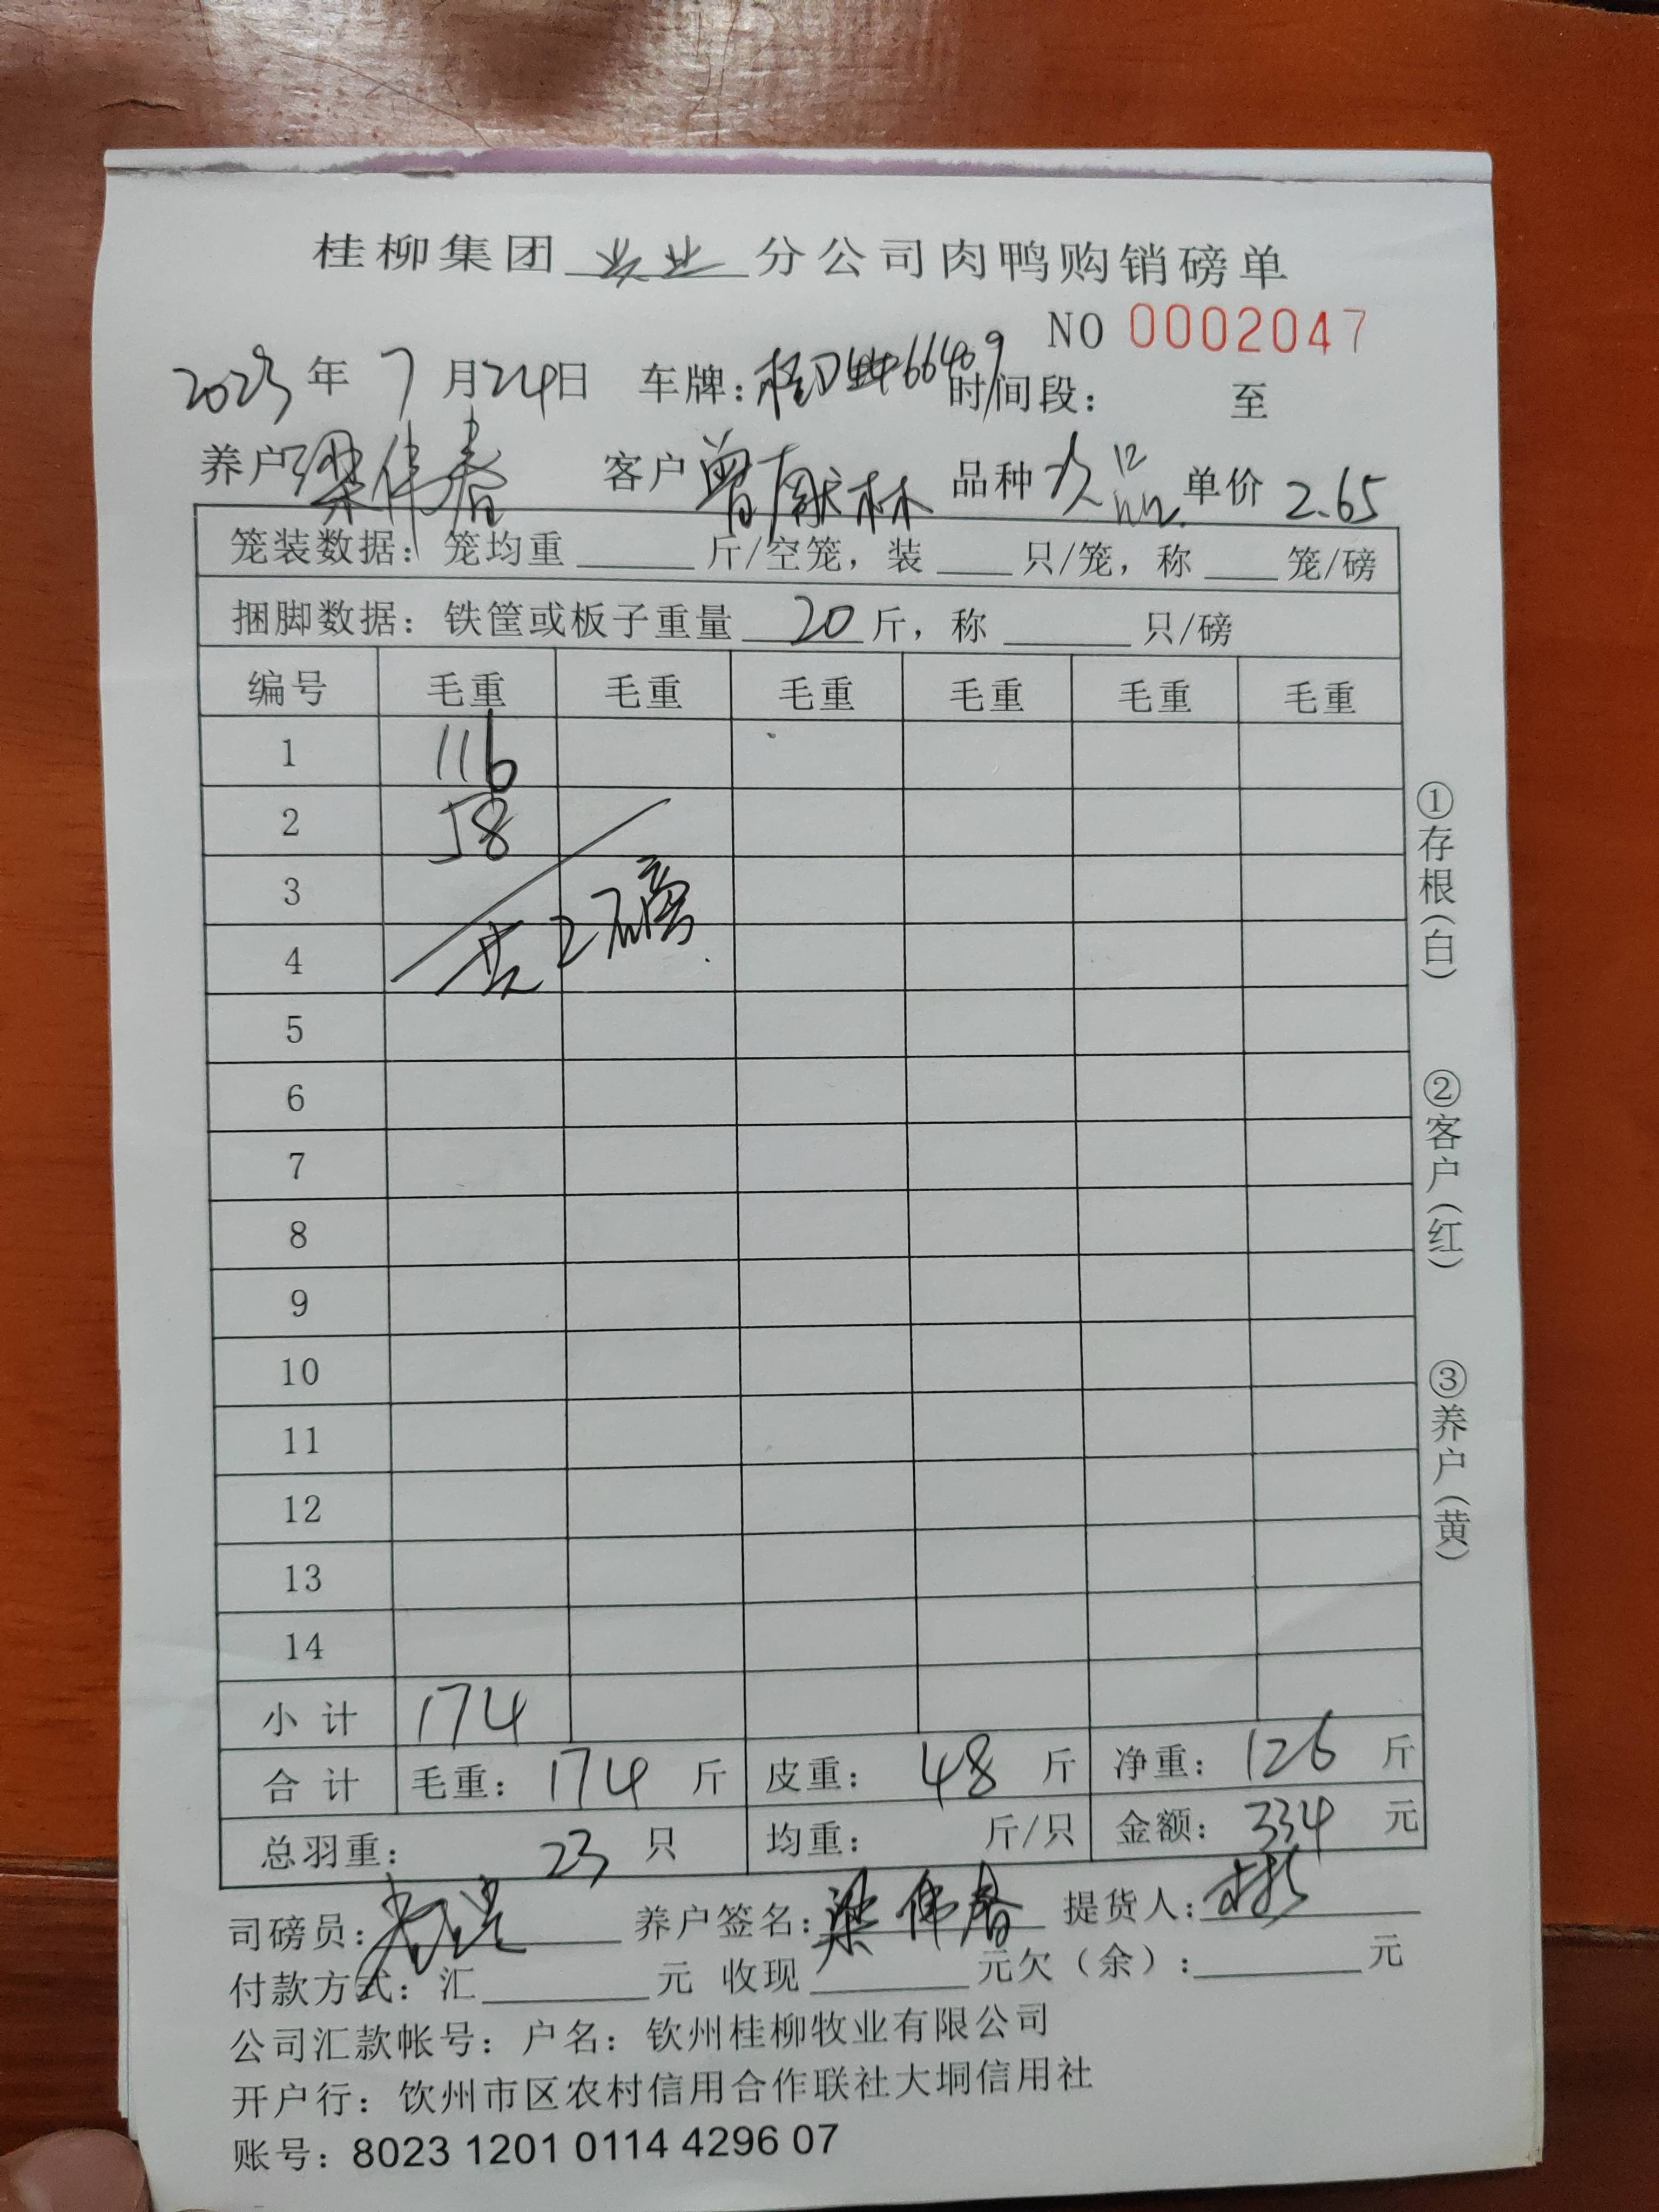 桂柳集团 分公司肉鸭购销磅单
NO 0002047
2023年7月24日 车牌: 时间段: 至
养户梁伟春 客户曾献林 品种 次品 单价 2.65
笼装数据: 笼均重 斤/空笼, 装 只/笼, 称 笼/磅
捆脚数据: 铁筐或板子重量 20 斤, 称 只/磅
编号 毛重 毛重 毛重 毛重 毛重 毛重
1 116
2 58
3
4 共2磅
5
6
7
8
9
10
11
12
13
14
小计 174
合计 毛重: 174 斤 皮重: 48 斤 净重: 126 斤
总羽重: 23 只 均重: 斤/只 金额: 334 元
司磅员: 养户签名: 梁伟春 提货人:
付款方式: 汇 元 收现 元欠(余): 元
公司汇款帐号: 户名: 钦州桂柳牧业有限公司
开户行: 钦州市区农村信用合作联社大垌信用社
账号: 8023 1201 0114 4296 07
①存根(白)
②客户(红)
③养户(黄)